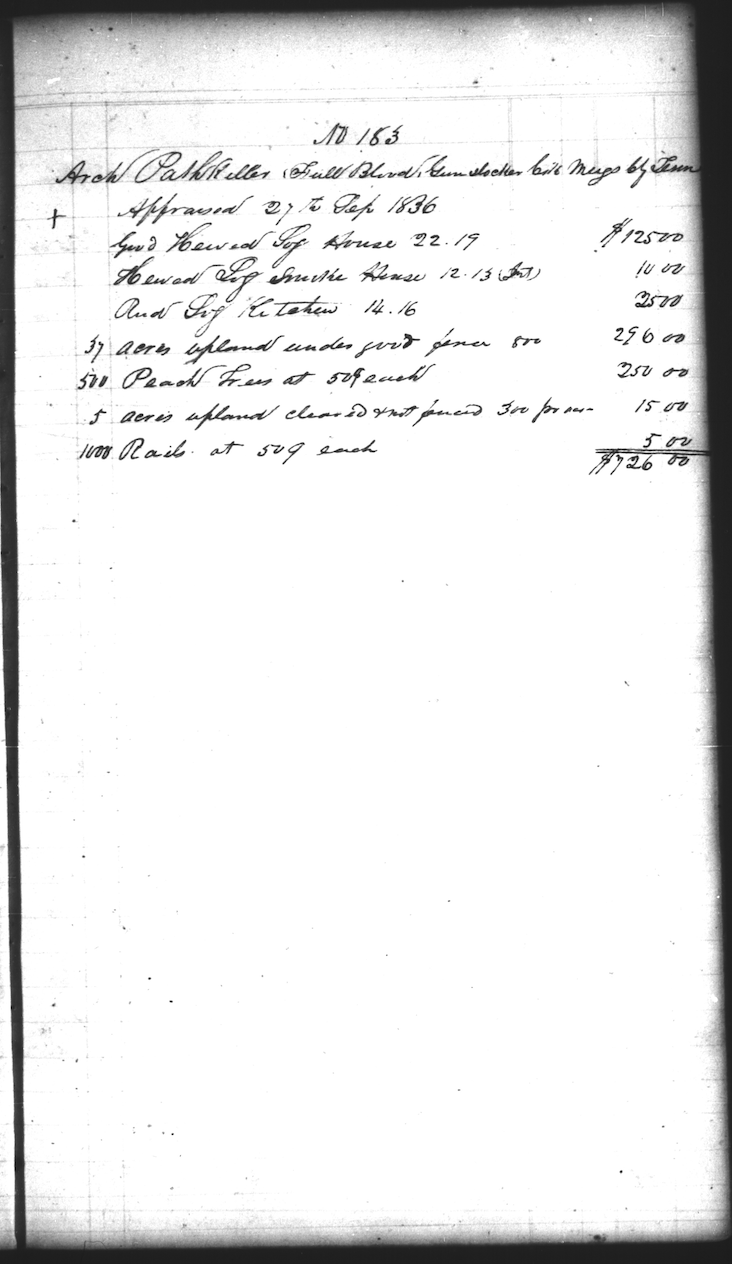 No 183
Arch Pathkiller (Full Blood) Gunstocker Crk Meigs Cty Tenn
+ Appraised 27th Sep 1836
Good Hewed Log House 22.19 $125 00
Hewed Log Smoke House 12.13 10 00
Rud Log Kitchen 14.16 25 00
37 acres upland under good fence 800 296 00
500 Peach Trees at 50¢ each 250 00
5 acres upland cleared & not fenced 300 pr acr 15 00
1000 Rails at 50¢ each 5 00
$726 00